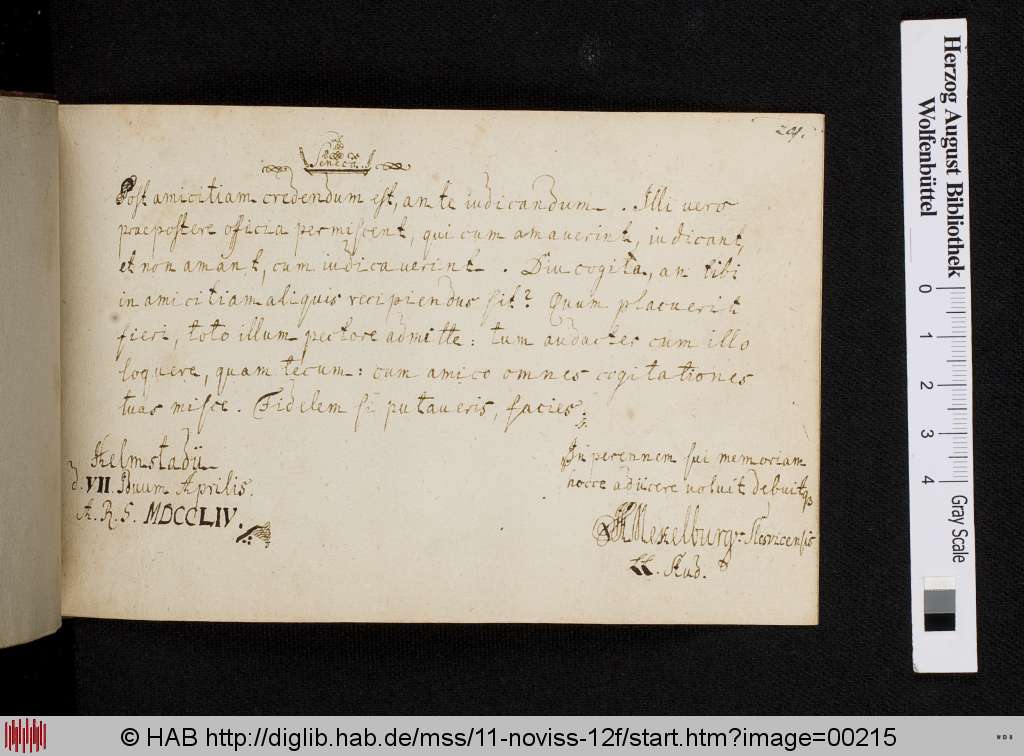 201.
Seneca
Post amicitiam credendum est, ante iudicandum. Illi vero
praepostere officia permiscent, qui cum amaverint, iudicant,
et non amant, cum iudicaverint. Diu cogita, an tibi
in amicitiam aliquis recipiendus sit? Quum placuerit
fieri, toto illum pectore admitte: tum audacter cum illo
loquere, quam tecum: cum amico omnes cogitationes
tuas misce. Fidelem si putaveris, facies.
Helmstadii
d. VII. Iduum Aprilis.
A. R. S. MDCCLIV.
In perennem sui memoriam
hocce adiicere voluit debuitq3
Mekelburg Slesvicensis
LL. Stud.
Herzog August Bibliothek
Wolfenbüttel
0 1 2 3 4
Gray Scale
© HAB http://diglib.hab.de/mss/11-noviss-12f/start.htm?image=00215
WDB